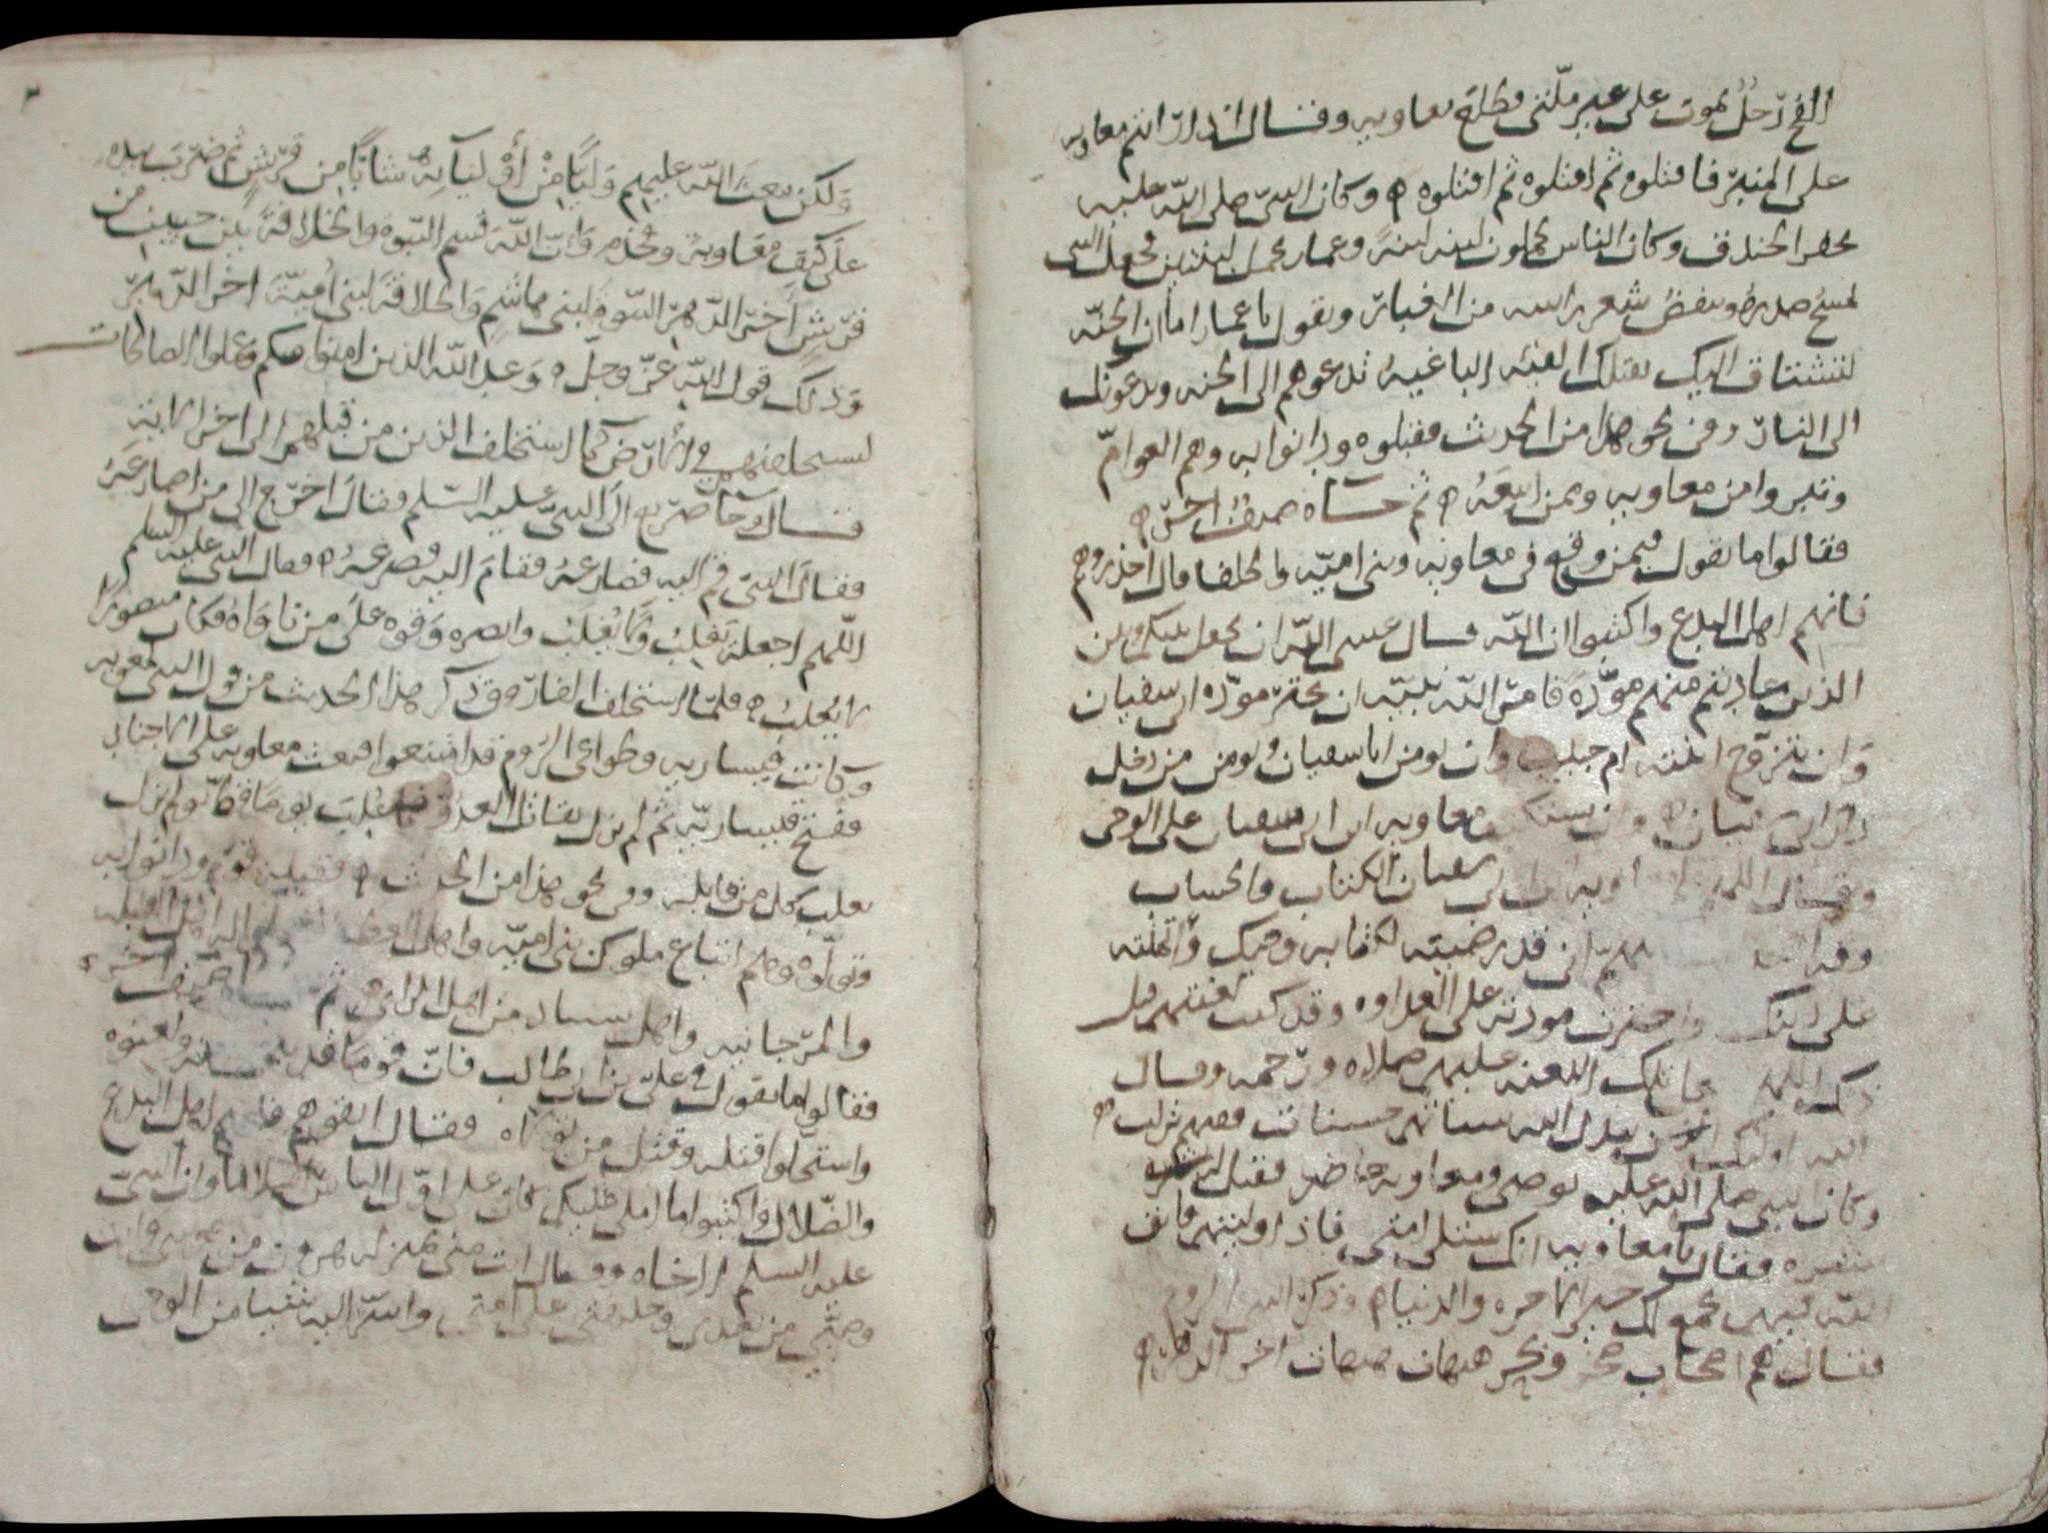 الفج رجل يموت على غير ملتى فطلع معاويه وقال اذا رايتم معاويه
على المنبر فاقتلوه ثم اقتلوه ثم اقتلوه ه وكان النبى صلى الله عليه
يحفر الخندق وكان الناس يحملون لبنه لبنة وعمار يحمل لبنتين فجعل النبى
يمسح صدره وينفض شعر راسه من الغبار ويقول يا عمار اما ان الجنه
لتشتاق اليك يقتلك الفئه الباغية تدعوهم الى الجنه ويدعونك
الى النار وفى نحو هذا من الحديث فقبلوه ودانوا به وهم العوام
وتبروا من معاويه وممن اتبعه ه ثم جاه صنف اخر ه
فقالوا ما تقول فيمن وقع فى معاويه وبنى اميه والخلفا قال احذروهم
فانهم اهل البدع واكتبوا ان الله قال عسى الله ان يجعل بينكم وبين
الذين عاديتم منهم مودة فامر الله نبيه ان يجتر مودة ابى سفيان
وان يتزوج ابنته ام حبيبه وان يومن ابا سفيان ويومن من دخل
دار ابى سفيان ه وان يستكتب معاويه ابن ابى سفيان على الوحى
وقال اللهم علم معاويه ابن ابى سفيان الكتاب والحساب
انى قد رضيته لكتابه وحيك وائتمنته
على دينك واجتررت مودته على العداوه وقد كنت لعنتهم قبل
ذلك اللهم فاجعل تلك اللعنه عليهم صلاه ورحمه وقال
الله اوليك الذين يبدل الله سياتهم حسنات ففيهم نزلت ه
وكان النبى صلى الله عليه يوصى ومعاويه حاضر فقبل
فقال يا معاويه انك ستلى امتى فاذا وليتهم فاتق
الله فيهم يجمع لك خير الاخره والدنيا ه وذكر النبى الروم
فقال هم اصحاب صخر وبحر هيهات هيهات اخر الدهر ه
ولكن يبعث الله عليهم وليا من أوليآئه شابا من قريش ثم ضرب بيده
على كتف معاوية وفخذه وان الله قسم النبوه والخلافة بين حيين من
قريش آخر الدهر النبوة لبنى هاشم والخلافة لبنى أمية اخر الدهر
وذلك قول الله عز وجل ه وعد الله الذين امنوا منكم وعملوا الصالحات
ليستخلفنهم فى الارض كما استخلف الذين من قبلهم الى اخر الايه
قال وجآ صريع الى النبى عليه السلم وقال اخرج الى من اصارعه
فقال النبى قم اليه فصارعه فقام اليه فصرعه ه فقال النبى عليه السلم
اللهم اجعله يغلب ولا يغلب وانصره وقوه على من ناواه فكان منصورا
لا يغلب ه فلما استخلف الفاروق ذكر هذا الحديث من قول النبى لمعويه
وكانت قيساريه وطواغى الروم قد امتنعوا فبعث معاويه على الاجناد
ففتح قيساريه ثم لم يزل يقاتل العدو فما غلب يوما قط ولم يزل
يغلب كل من قابله وفى نحو هذا من الحديث ه فقبلوه ودانوا به
وتولوه وهم اتباع ملوك بنى اميه واهل
والمرجانيه واهل من اهل الراى ه ثم صنف اخر ه
فقالوا ما تقول فى على بن ابى طالب فان قوما قد ولعنوه
واستحلوا قتله وقتل من تولاه فقال اتقوهم فانهم اهل البدع
والضلال واكتبوا ما املى عليكم كان على اول الناس اسلاما وان النبى
عليه السلم اخاه وقال انت منى بمنزله هرون من موسى وانت
وصيى من بعدى وخليفتى على امتى واسر اليه شيا من الوحى